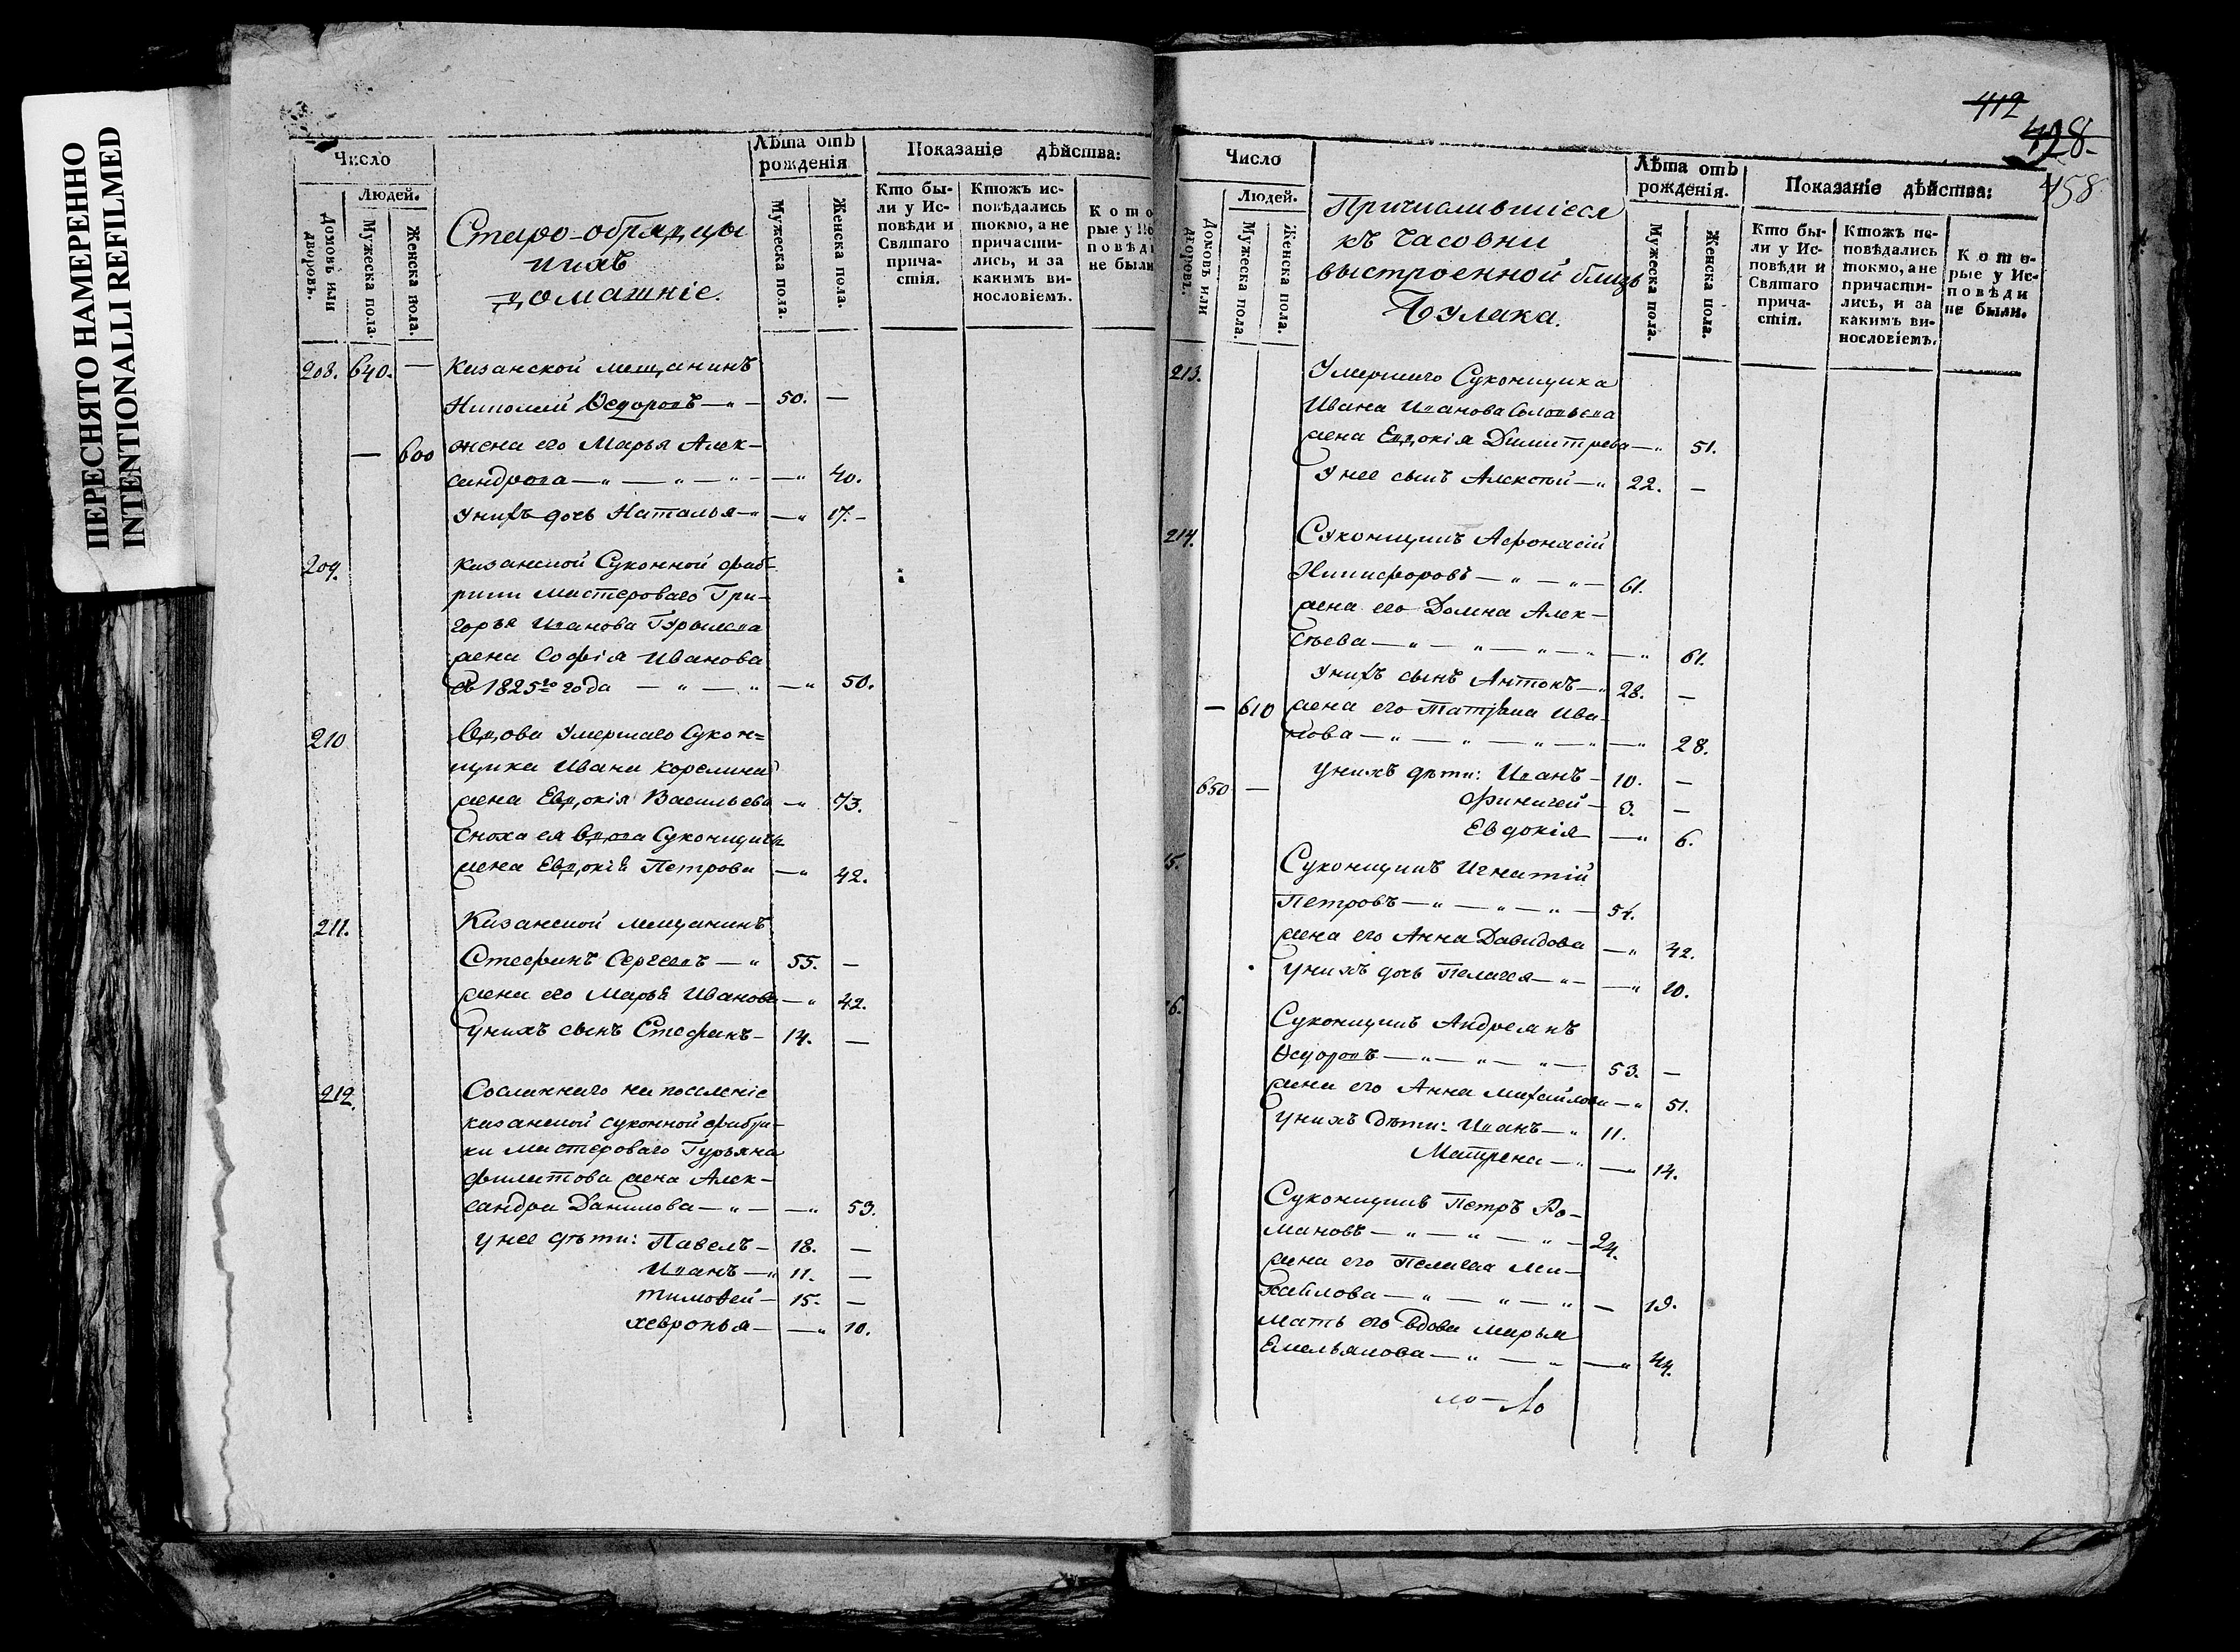 ПЕРЕСНЯТО НАМЕРЕННО
INTENTIONALLI REFILMED
Число
Людей.
Домовъ или дворовъ.
Мужеска пола.
Женска пола.
Старо-обрядцы
и ихъ
домашніе.
Лѣта отъ
рожденія
Мужеска пола.
Женска пола.
Показаніе дѣйства:
Кто бы-
ли у Ис-
повѣди и
Святаго
прича-
стія.
Ктожъ ис-
повѣдались
токмо, а не
причасти-
лись, и за
какимъ ви-
нословіемъ.
Кото
рые у Ис
повѣд
не были
208. 640. — Казанской мещанинъ
Николай Ѳедоровъ — „ — 50. —
— 600 жена его Марья Алек-
сандрова — „ — „ — „ — — „ 40.
У нихъ дочь Наталья — „ — „ 17. —
209. Казанской Суконной фаб-
рики мастероваго Гри-
горья Иванова
жена Софія Иванова
съ 1825го года — „ — „ — „ 50.
210 Вдова Умершаго Сукон=
щика Ивана Корелина
жена Евдокія Васильева — „ 73.
Сноха ея вдова Суконщичья
жена Евдокія Петрова — „ 42.
211. Казанской мещанинъ
Стефанъ Сергеевъ — „ 55. —
жена его Марья Иванова — „ 42.
У нихъ сынъ Стефанъ — 14. —
212. Сосланнаго на поселеніе
казанской суконной фабри-
ки мастероваго Гурьяна
Филатова жена Алек-
сандра Данилова — „ — — „ 53.
у нее дѣти: Павелъ — 18. —
Иванъ — „ 11. —
Тимоѳей — 15. —
Хевронья — — „ 10.
412
428.
458
Число
Людей.
Домовъ или дворовъ.
Мужеска пола.
Женска пола.
Причислившіеся
къ часовни
выстроенной близь
Булака.
Лѣта отъ
рожденія.
Мужеска пола.
Женска пола.
Показаніе дѣйства:
Кто бы-
ли у Ис-
повѣди и
Святаго
прича-
стія.
Ктожъ ис-
повѣдались
токмо, а не
причасти-
лись, и за
какимъ ви-
нословіемъ.
Кото-
рые у Ис-
повѣди
не были.
213. Умершаго Суконщика
Ивана Иванова Соловьева
жена Евдокія Димитрева — „ 51.
У нее сынъ Алексѣй — „ 22. —
214. Суконщикъ Афонасій
Никифоровъ — „ — „ — 61.
жена его Домна Алек-
сѣева — „ — „ — „ — „ — „ 61.
У нихъ сынъ Антонъ — „ 28. —
— 610 жена его Татьяна Ива-
нова — „ — „ — „ — „ — „ 28.
У нихъ дѣти: Иванъ — 10. —
650 —
3. —
Евдокія — „ 6.
15. Суконщикъ Игнатій
Петровъ — „ — „ — „ — 54.
жена его Анна Давидова — „ 42.
У нихъ дочь Пелагея — „ — — „ 10.
16. Суконщикъ Андреянъ
Ѳедоровъ — „ — „ — „ — 53. —
жена его Анна Михайлова — „ 51.
У нихъ Дѣти: Иванъ — „ 11.
Матрена — „ — „ 14.
Суконщикъ Петръ Ро-
мановъ — „ — „ — „ — 24.
жена его Пелагея Ми-
хайлова — „ — „ — „ — 19.
Мать его вдова Марья
Емельянова — „ — „ — „ 44.